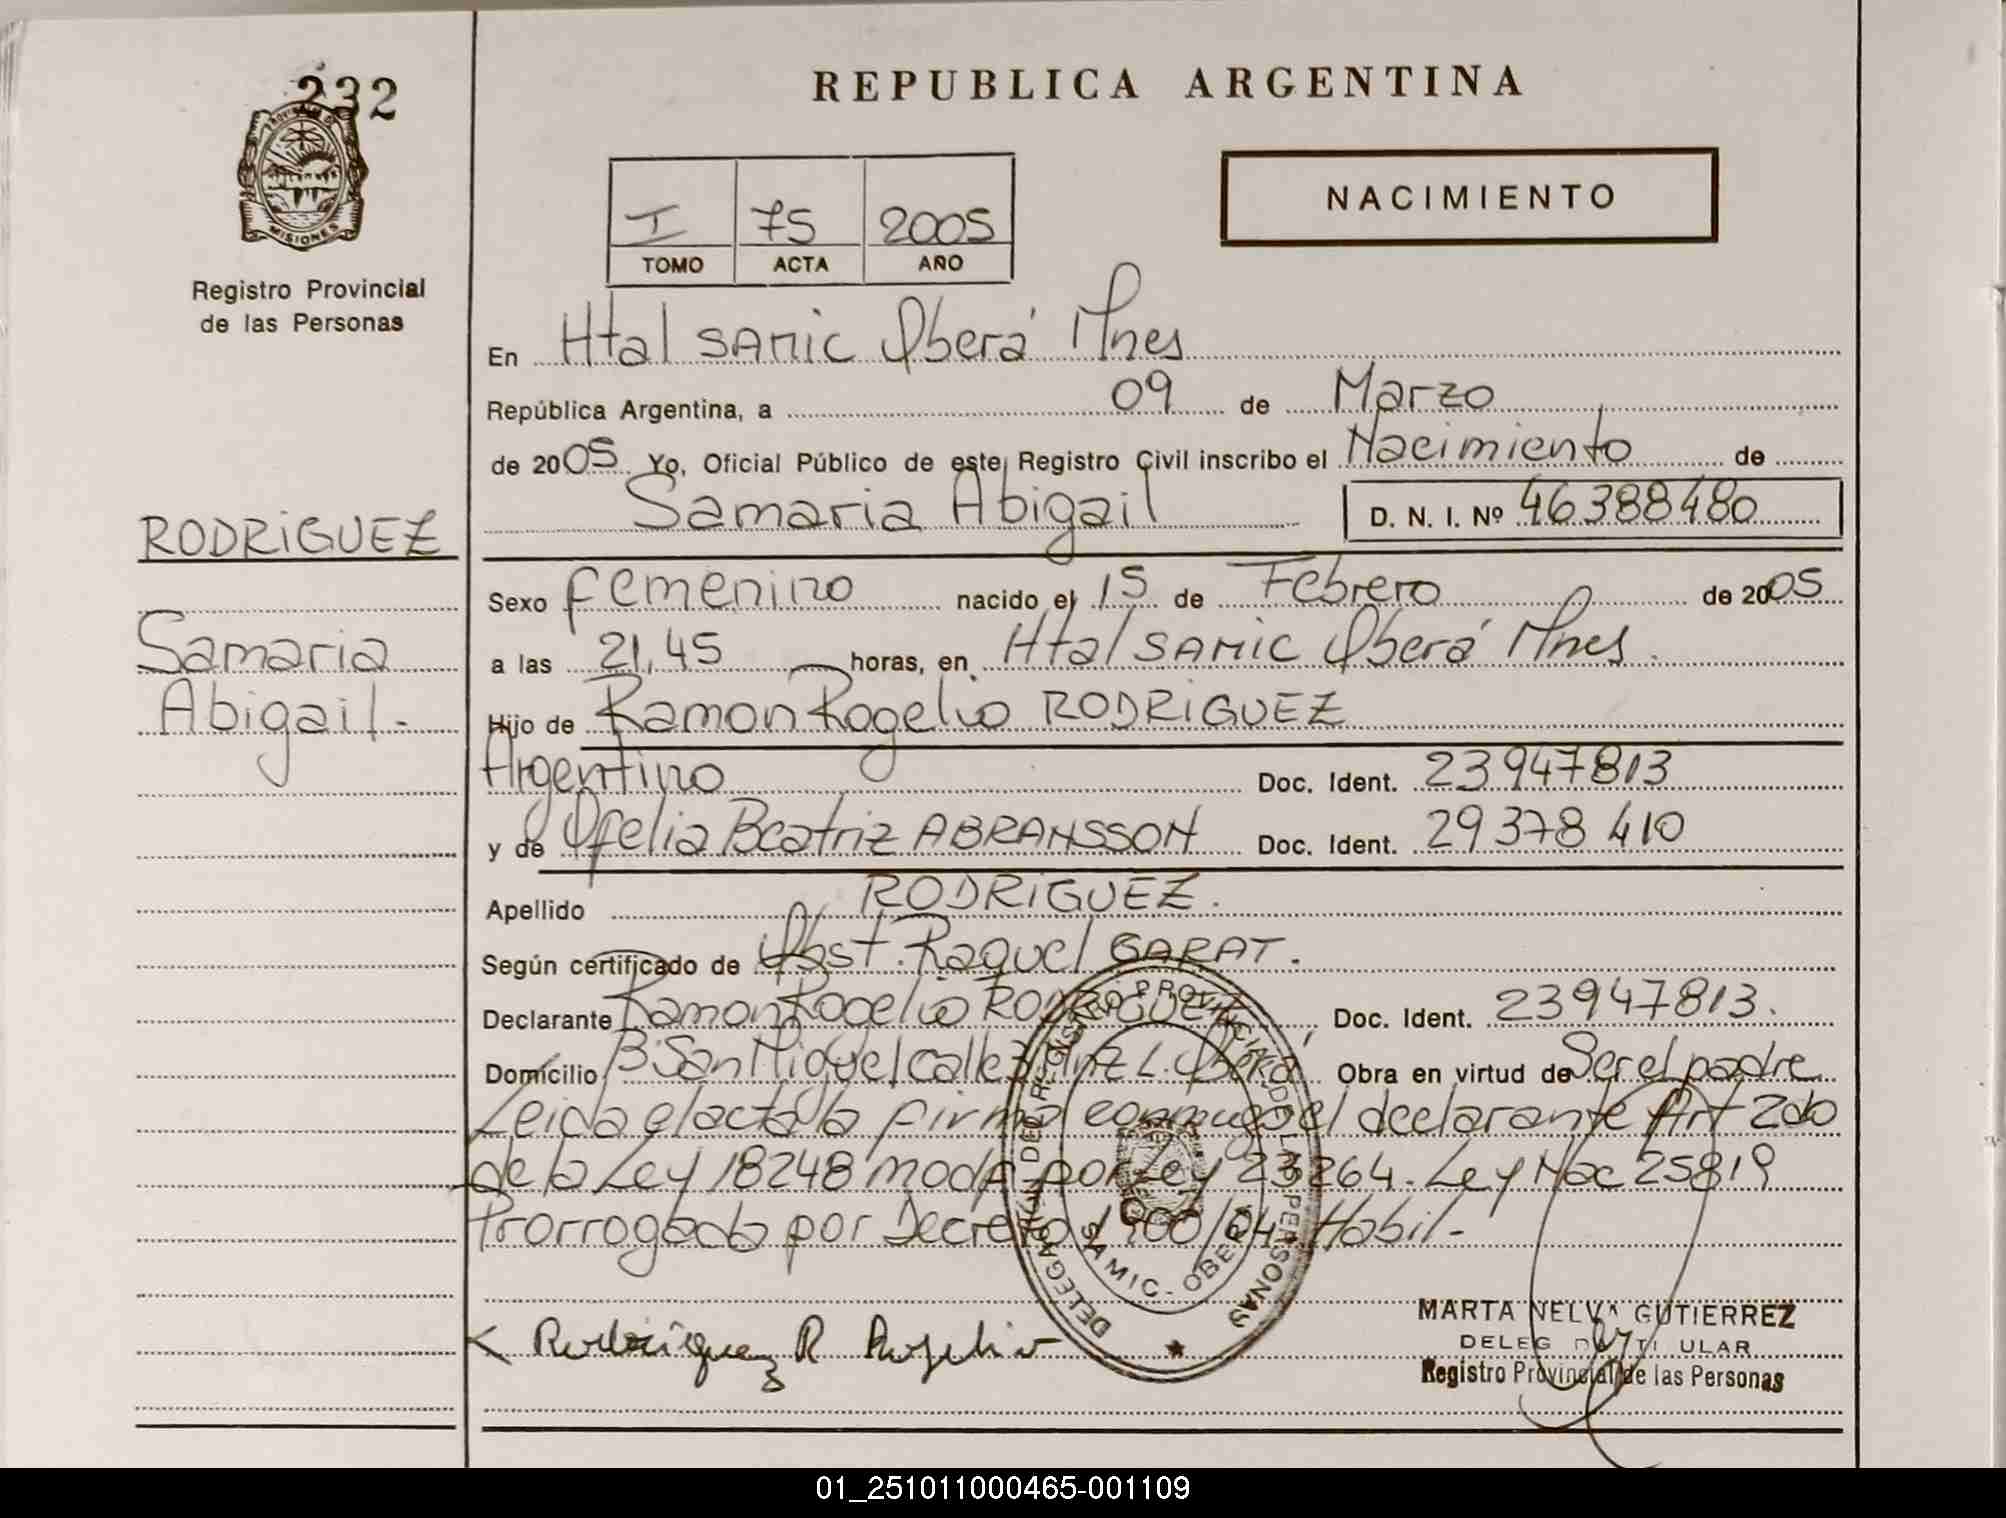 232
PROVINCIA DE
MISIONES
Registro Provincial
de las Personas
RODRIGUEZ
Samaria
Abigail.-
REPUBLICA ARGENTINA
I 75 2005
TOMO ACTA AÑO
NACIMIENTO
En Htal SAMIC Oberá Mnes
República Argentina, a 09 de Marzo
de 2005 Yo, Oficial Público de este Registro Civil inscribo el Nacimiento de
Samaria Abigail D. N. I. Nº 46388480
Sexo femenino nacido el 15 de Febrero de 2005
a las 21,45 horas, en Htal SAMIC Oberá Mnes.
Hijo de Ramon Rogelio RODRIGUEZ
Argentino Doc. Ident. 23947813
y de Ofelia Beatriz ABRANSSON Doc. Ident. 29378410
Apellido RODRIGUEZ.
Según certificado de Obst. Raquel GARAT.
Declarante Ramon Rogelio RODRIGUEZ, Doc. Ident. 23947813.
Domicilio B: San Miguel calle L. Oberá Obra en virtud de Ser el padre
Leida el acta la firma conmigo el declarante Art 2do
de la Ley 18248 modf por Ley 23264. Ley Nac 25819
Prorrogado por Decreto 1900/04. Habil-
DELEGACION DEL REGISTRO PROVINCIAL DE LAS PERSONAS
SAMIC - OBERA
Rodriguez R Rogelio
MARTA NELVA GUTIERREZ
DELEGADA TITULAR
Registro Provincial de las Personas
01_251011000465-001109